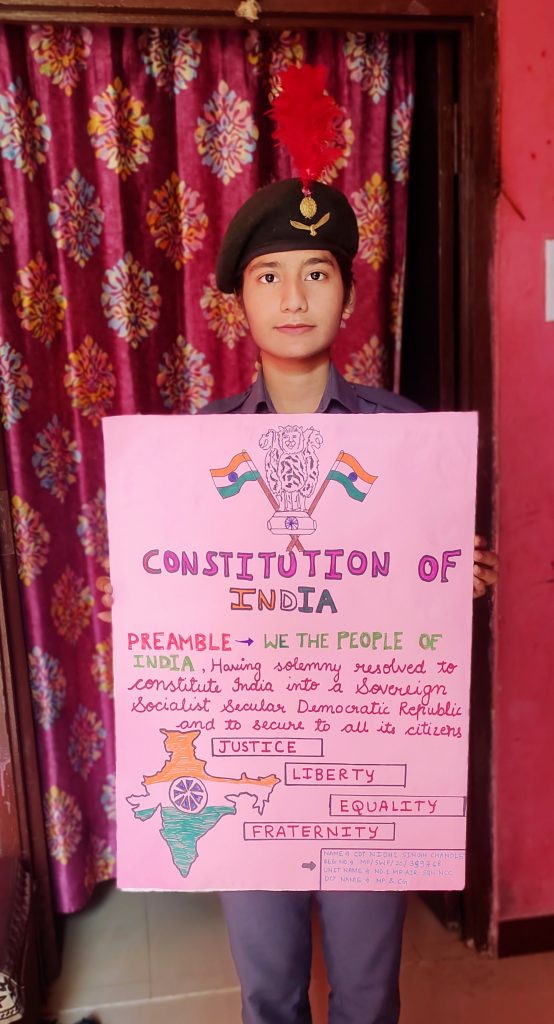 CONSTITUTION OF
INDIA
PREAMBLE → WE THE PEOPLE OF
INDIA, Having solemny resolved to
constitute India into a Sovereign
Socialist Secular Democratic Republic
and to secure to all its citizens
JUSTICE
LIBERTY
EQUALITY
FRATERNITY
NAME :- CDT NIDHI SINGH CHANDLE
REG NO :- MP/SWF/20/
UNIT NAME :- NO.1 MP AIR SQN NCC
NAME :- MP & CG